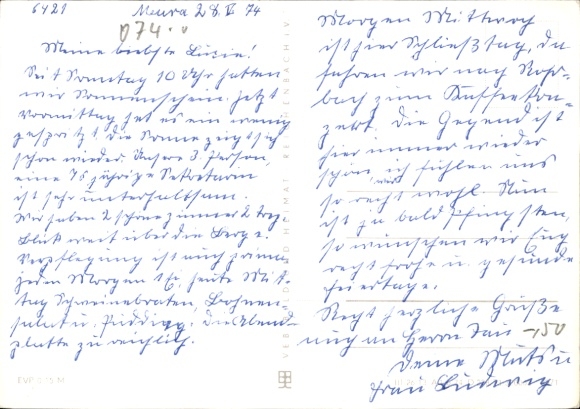 6421 Meura 28.V. 74
074.0
Meine liebste Luzie!
Seit Sonntag 10 Uhr hatten
wir Sonnenschein. Jetzt
Vormittag hat es ein wenig
gespritzt die Sonne zeigt sich
schon wieder. Unsere 3. Person,
eine 75 jährige Sekretärin
ist sehr unterhaltsam.
Wir haben 2 schöne Zimmer 2 Trep.
Blick weit über die Berge.
Verpflegung ist auch prima
jeden Morgen 1 Ei, heute Mit-
tag Schweinebraten, Bohnen-
salat u. Pudding. Die Abend-
platte zu reichlich.
Morgen Mittwoch
ist hier Schließtag, da
fahren wir nach Rohr-
bach zum Kaffeekon-
zert. Die Gegend ist
hier immer wieder
schön, ich fühlen uns
wir
so recht wohl. Nun
ist ja bald Pfingsten,
so wünschen wir Euch
recht frohe u. gesunde
Feiertage.
Recht herzliche Grüße
auch an Herrn
-,50
Deine Mutsu
Frau Ludwig
VEB BILD UND HEIMAT REICHENBACH I.V.
EVP 0,15 M